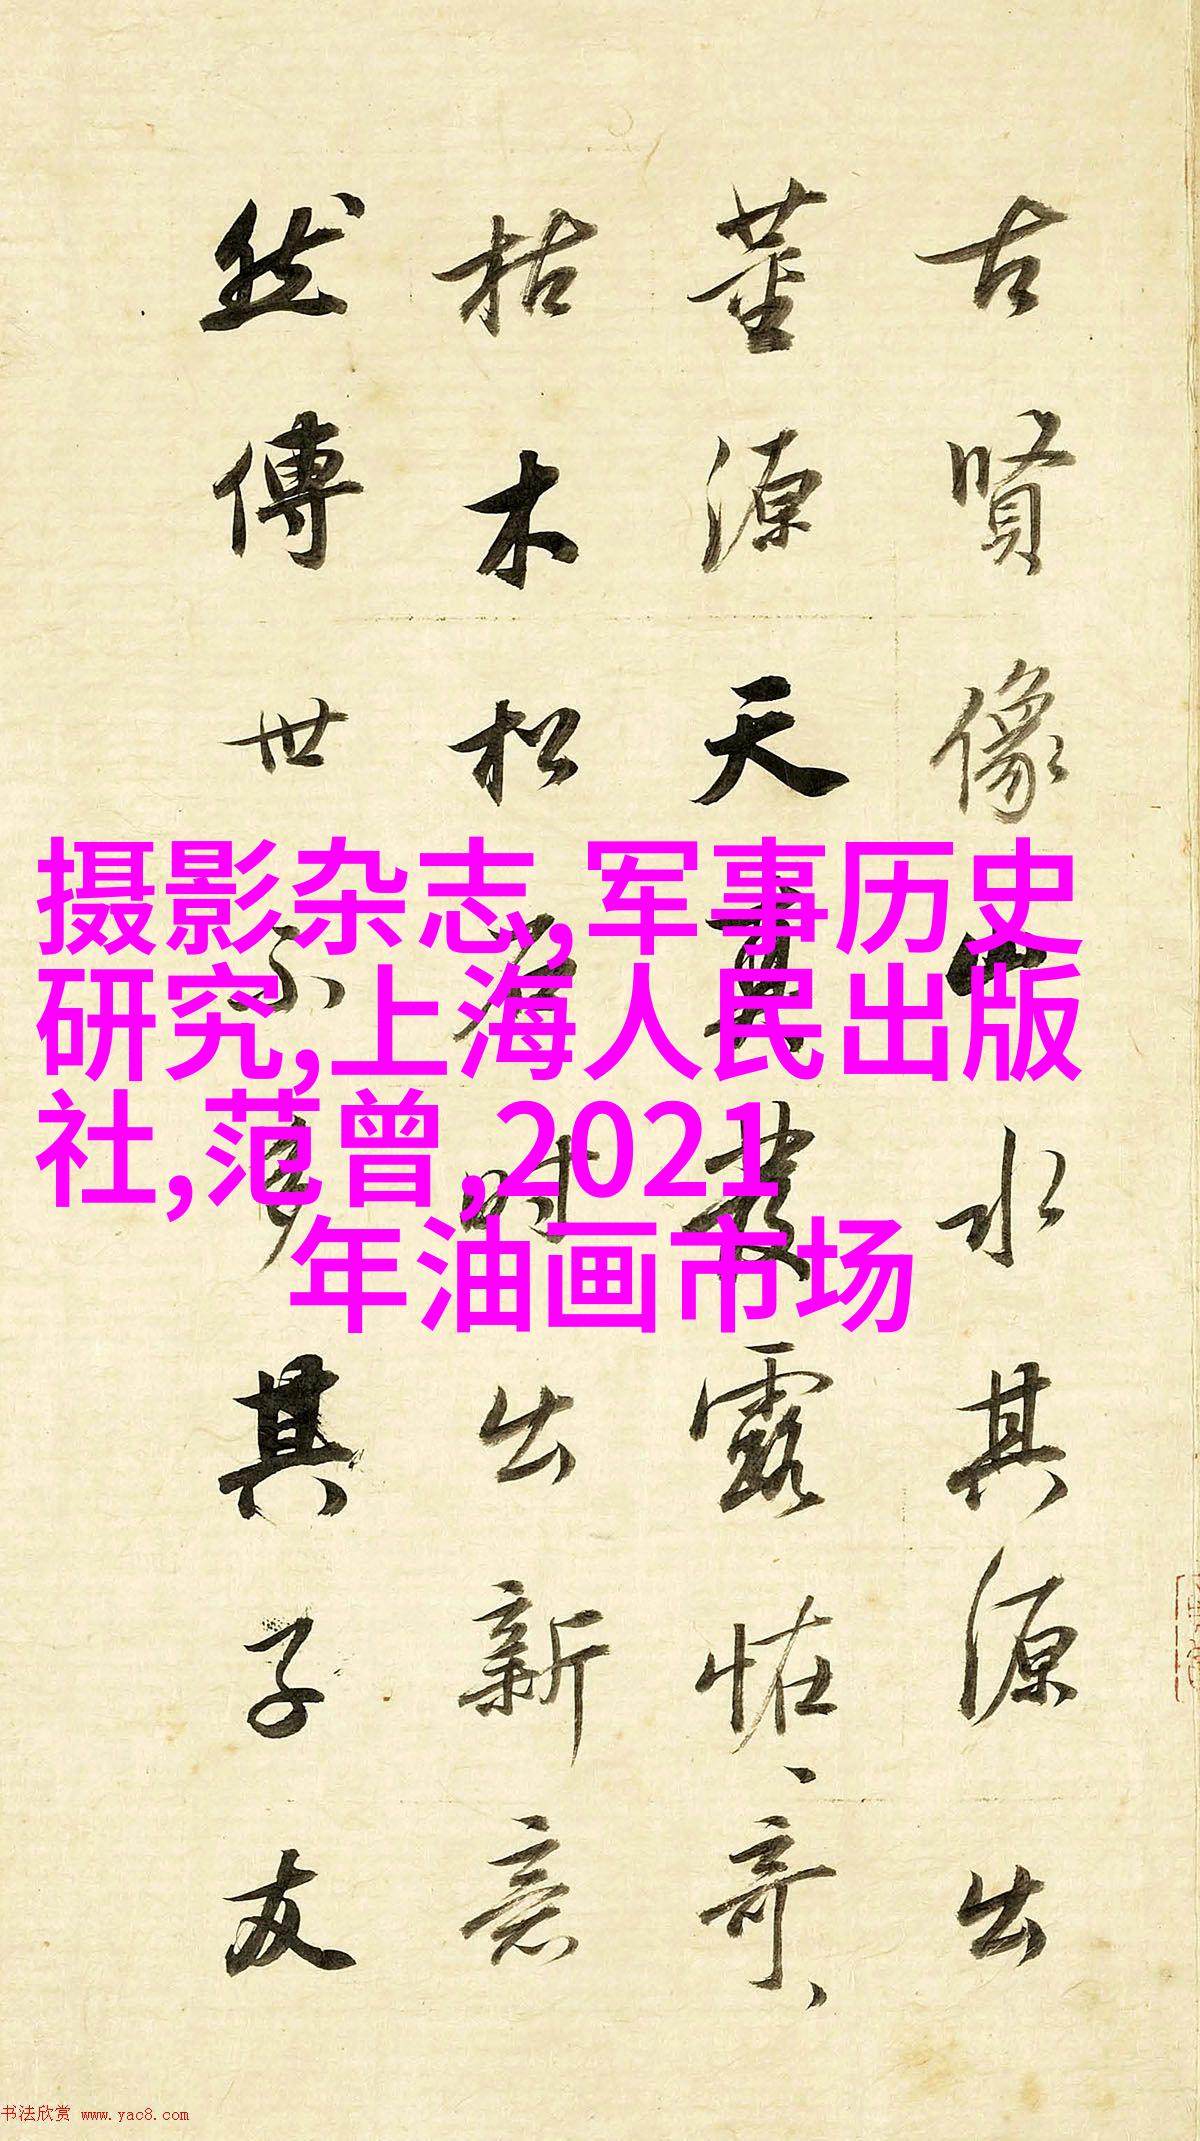 古賢像山水其源出
董源天真發露恠、奇、
枯木松石時出新意
然傳世不多其子友
摄影杂志,军事历史
研究,上海人民出版
社,范曾,2021
年油画市场
书法欣赏 www.yac8.com